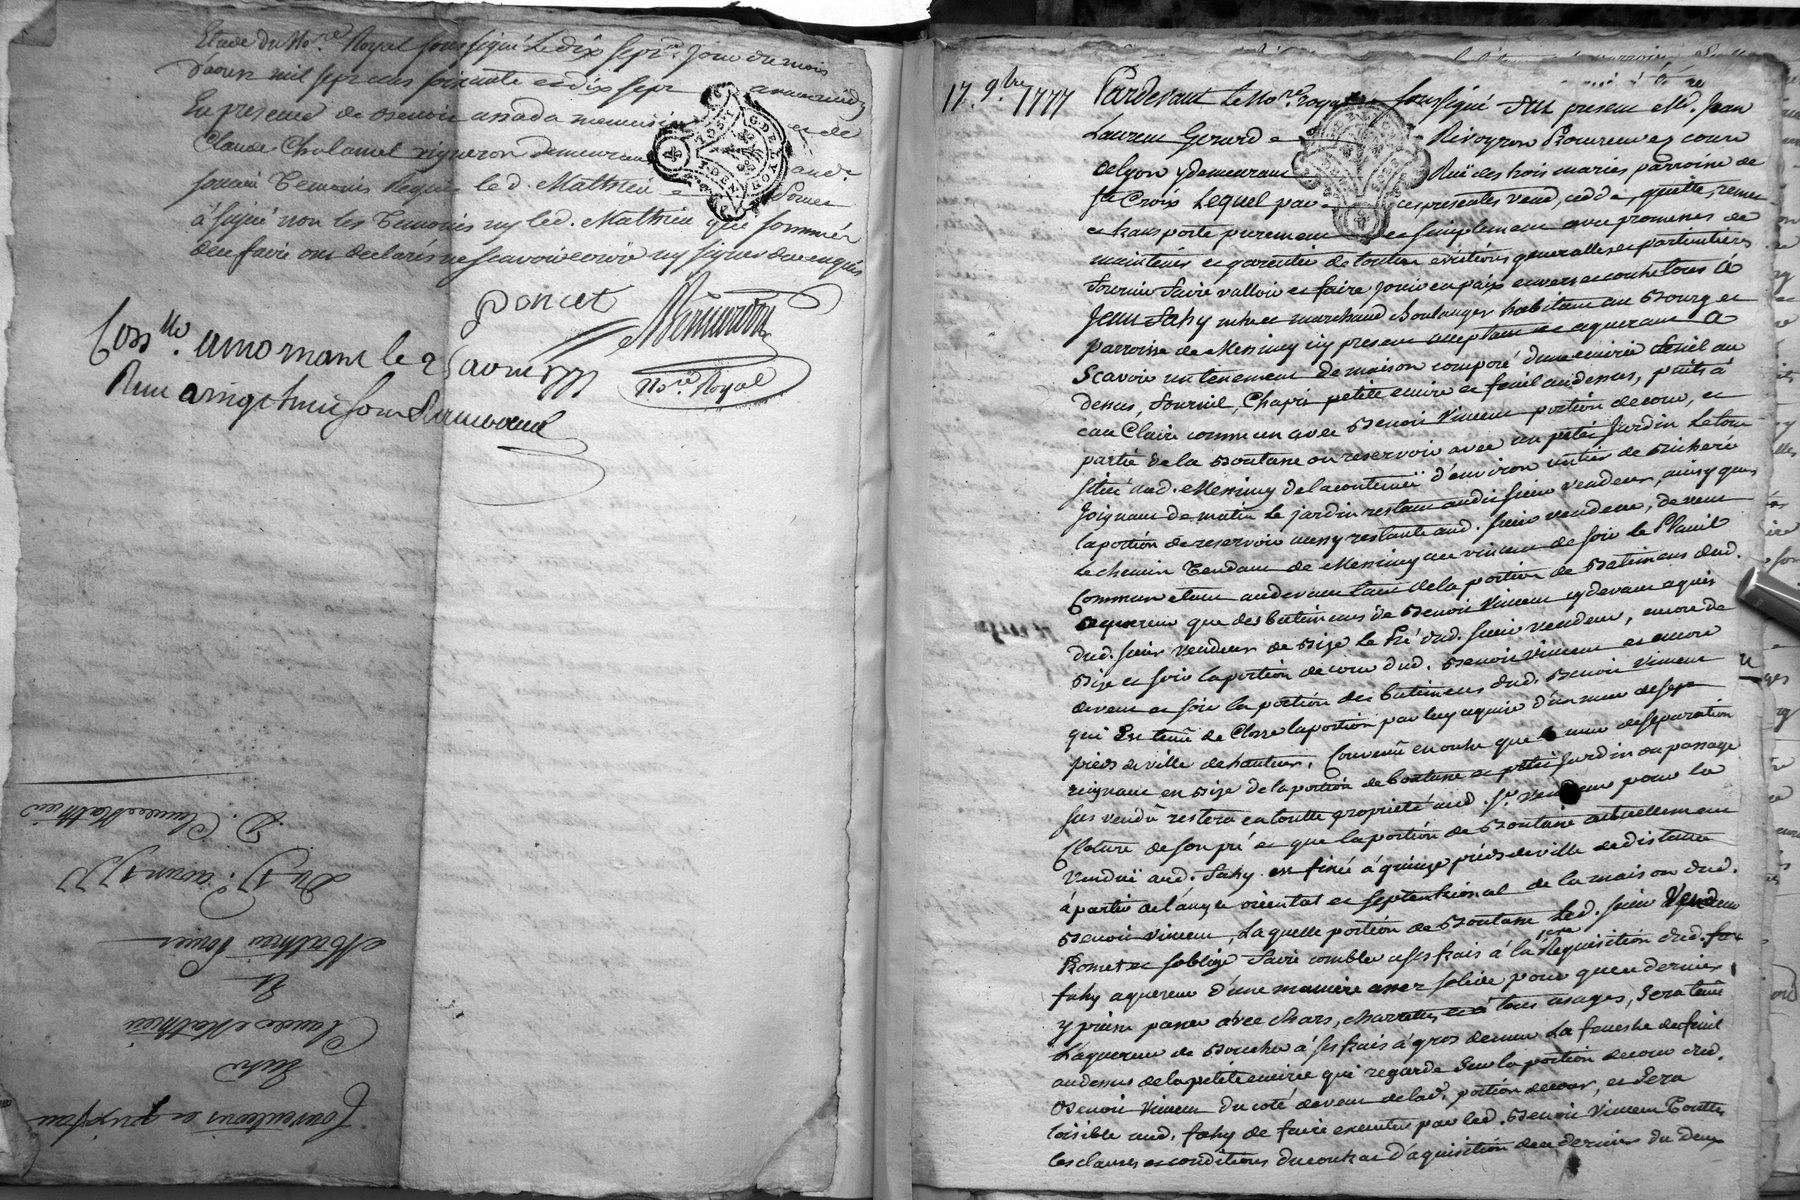 Etude du No.re Royal soussigné le dix sept.e jour du mois
d'aoust mil sept cens soixante et dix sept avant midy
En presence de Benoit assada menuisier et de
Claude Chalamel vigneron demeurant aud.
le d. Mathieu
à signé non les Temoins ny led. Mathieu que sommés
de ce faire ont declarés ne scavoir ecrire ny signer de ce enquis
poncet
No.re Royal
Con.lle a mornant le 25 aoust 1777
Reçu vingt huit sous
17 9.bre 1777
Pardevant le No.re royal soussigné fut present M.e Jean
Laurent Gerard Rivoyron Procureur ez cours
de Lyon y demeurant Ruë des trois maries parroisse de
S.te Croix Lequel par ces presentes vend, cedde, quitte, remet
et transporte purement et simplement avec promesses de
maintenir et garentie de toutes evictions generalles et particulieres
fournir faire valloir et faire jouir en paix envers et contre tous à
Jean Fahy m.tre et marchand Boulanger habitant au Bourg et
parroisse de Messimy icy present acceptant et aquerant A
Scavoir un tenement de maison composé d'une cuisine fenil au
dessus, fournil, Chapit petitte cuisine et fenil au dessus, puits à
eau Claire commun avec Benoit Vincent portion de cour, et
partie de la Boutasse ou reservoir avec un petit Jardin Le tout
situé aud. Messimy de la contenüe d'environ un tier de Bicheré
Joignant de matin le jardin restant audit sieur vendeur, ainsy que
la portion de reservoir aussy restante aud. sieur vendeur, de vent
le chemin Tendant de Messimy de soir le
Commun etant au devant tant de la portion de Batimens dud.
aquereur que des batimens de Benoit Vincent cy devant aquis
dud. sieur vendeur de Bize le Pré dud. sieur vendeur, encore de
Bize et soir la portion de cour dud. Benoit Vincent et encore
de vent et soir la portion des batimens dud. Benoit Vincent
qui Est tenu de Clorre la portion par luy aquise d'un mur de sept
pieds de ville de hauteur. Convenû en outre que le mur de separation
reignant en Bize de la portion de boutasse et petit Jardin ou passage
sus vendû restera en toutte proprieté aud. S.r vendeur pour la
Cloture de son pré et que la portion de Boutasse actuellement
vendüe aud. Fahy est fixée à quinze pieds de ville de distance
à partir de l'angle oriental et septentrional de la maison dud.
Benoit Vincent, Laquelle portion de Boutasse Led. sieur Vendeur
Promet et s'oblige faire combler a ses frais à la 1ere Requisition dud.
fahy aquereur d'une maniere assez solide pour que ce dernier
y puisse passer avec chars, charrettes et à tous usages, Sera tenu
L'aquereur de Boucher à ses frais à gros de mur La fenestre du fenil
au dessus de la petite cuisine qui regarde sur la portion de cour dud.
Benoit Vincent du coté de vent de lad. portion de cour, et Sera
loisible aud. fahy de faire executer par led. Benoit Vincent Touttes
les clauses et conditions du contrat d'aquisition de ce dernier du deux
Conventions et prixfait
Entre
Claude Mathieu
Et
Mathieu
Du 17.e aoust 1777
D. Claude Mathieu